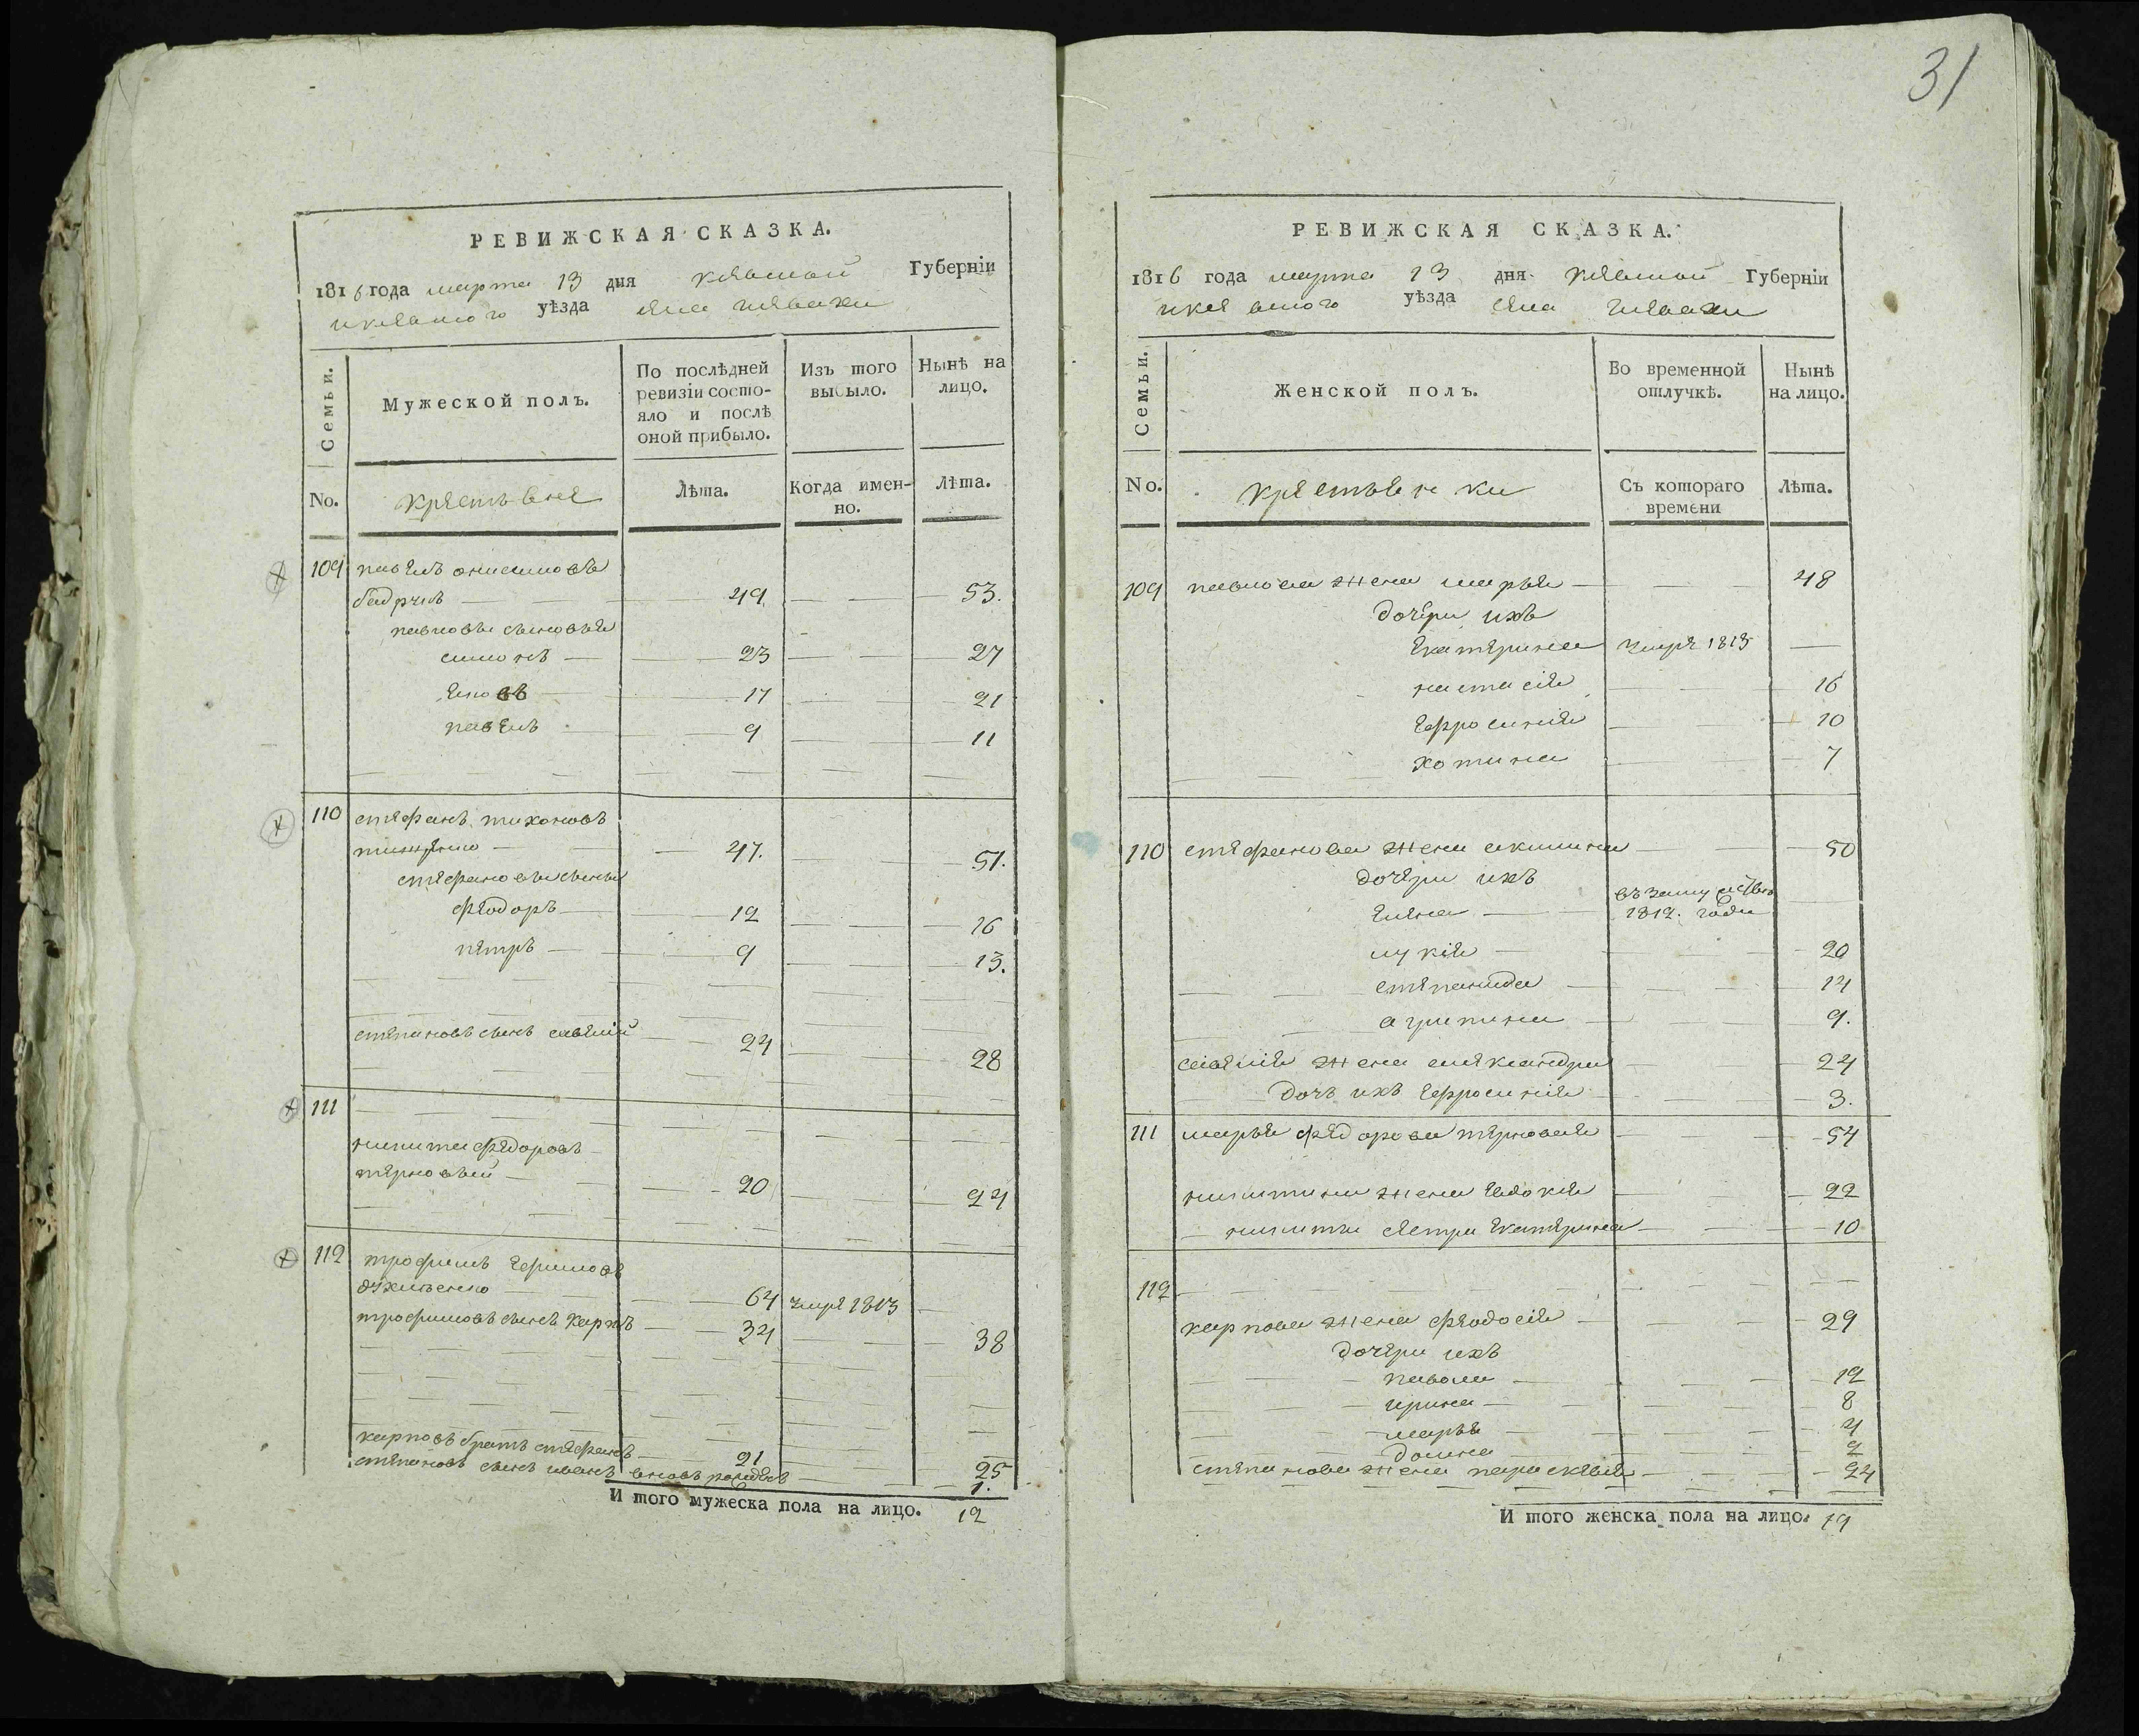 31
РЕВИЖСКАЯ СКАЗКА.
1816 года марта 13 дня киевской Губерніи
икиевского уѣзда села
Семьи.
Мужеской полъ.
По послѣдней ревизіи состо-
яло и послѣ оной прибыло.
Изъ того выбыло.
Нынѣ на лицо.
No.
крестьяне
Лѣта.
Когда имен-
но.
Лѣта.
109 павелъ онисимовъ
49 53.
павловы сыновья
симонъ 23 27
17 21
павелъ 9 11
110 стефанъ тихоновъ
47. 51.
стефановы сыны
феодоръ 12 16
петръ 9 13.
степановъ сынъ савелій 24 28
111
никита федоровъ
терновый 20 24
112 трофимъ ефимовъ
64 умре 1813
трофимовъ сынъ карпъ 34 38
карповъ братъ стефанъ 21 25
степановъ сынъ иванъ вновь рожденъ 1.
И того мужеска пола на лицо. 12
РЕВИЖСКАЯ СКАЗКА.
1816 года марта 13 дня киевской Губерніи
икиевского уѣзда села
Семьи.
Женской полъ.
Во временной отлучкѣ.
Нынѣ на лицо.
No.
крестьянки
Съ котораго времени
Лѣта.
109 павлова жена марья 48
дочери ихъ
екатерина умре 1813
настасія 16
ефросинія 10
хотина 7
110 стефанова жена акилина 50
дочери ихъ
елена въ замужствѣ
1812. года
лукія 20
степанида 14
агрипина 9.
савелія жена александра 24
дочь ихъ ефросинія 3.
111 марья федорова терновая 54
никитина жена евдокія 22
никиты сестра екатерина 10
112
карпова жена феодосія 29
дочери ихъ
павла 12
ирина 8
марья 4
домна 2
степанова жена параскевія 24
И того женска пола на лицо. 19